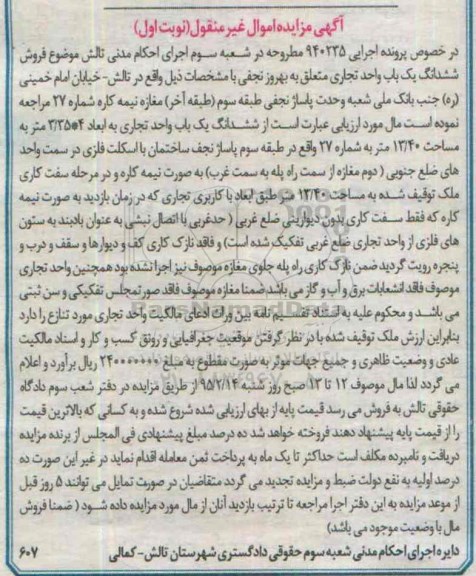 آگهی مزایده اموال غیر منقول (نوبت اول)
در خصوص پرونده اجرایی ۹۴۰۲۳۵ مطروحه در شعبه سوم اجرای احکام مدنی تالش موضوع فروش
ششدانگ یک باب واحد تجاری متعلق به بهروز نجفی با مشخصات ذیل واقع در تالش- خیابان امام خمینی
(ره) جنب بانک ملی شعبه وحدت پاساژ نجفی طبقه سوم (طبقه آخر) مغازه نیمه کاره شماره ۲۷ مراجعه
نموده است مال مورد ارزیابی عبارت است از ششدانگ یک باب واحد تجاری به ابعاد ۴*۳/۳۵ متر به
مساحت ۱۳/۴۰ متر به شماره ۲۷ واقع در طبقه سوم پاساژ نجف ساختمان با اسکلت فلزی در سمت واحد
های ضلع جنوبی (دوم مغازه از سمت راه پله به سمت غرب) به صورت نیمه کاره و در مرحله سفت کاری
ملک توقیف شده به مساحت ۱۳/۴۰ متر طبق ابعاد با کاربری تجاری که در زمان بازدید به صورت نیمه
کاره که فقط سفت کاری بدون دیوارچینی ضلع غربی (حدغربی با اتصال نبشی به عنوان بادبند به ستون
های فلزی از واحد تجاری ضلع غربی تفکیک شده است) و فاقد نازک کاری کف و دیوارها و سقف و درب و
پنجره رویت گردید ضمن نازک کاری راه پله جلوی مغازه موصوف نیز اجرا نشده بود همچنین واحد تجاری
موصوف فاقد انشعابات برق و آب و گاز می باشد ضمنا مغازه موصوف فاقد صورتمجلس تفکیکی و سن ثبتی
می باشد و محکوم علیه به استناد تقسیم نامه بین وراث ادعای مالکیت واحد تجاری مورد تنازع را دارد
بنابراین ارزش ملک توقیف شده با در نظر گرفتن موقعیت جغرافیایی و رونق کسب و کار و اسناد مالکیت
عادی و وضعیت ظاهری و جمیع جهات موثر به صورت مقطوع به مبلغ ریال برآورد و اعلام
می گردد لذا مال موصوف ۱۲ تا ۱۳ صبح روز شنبه ۹۵/۲/۱۴ از طریق مزایده در دفتر شعب سوم دادگاه
حقوقی تالش به فروش می رسد قیمت پایه از بهای ارزیابی شده شروع شده و به کسانی که بالاترین قیمت
را از قیمت پایه پیشنهاد دهند فروخته خواهد شد ده درصد مبلغ پیشنهادی فی المجلس از برنده مزایده
دریافت و نامبرده مکلف است حداکثر تا یک ماه به پرداخت ثمن معامله اقدام نماید در غیر این صورت ده
درصد اولیه به نفع دولت ضبط و مزایده تجدید می گردد متقاضیان در صورت تمایل می توانند ۵ روز قبل
از موعد مزایده به این دفتر اجرا مراجعه تا ترتیب بازدید آنان از مال مورد مزایده داده شود (ضمنا فروش
مال با وضعیت موجود می باشد)
دایره اجرای احکام مدنی شعبه سوم حقوقی دادگستری شهرستان تالش- کمالی ۶۰۷